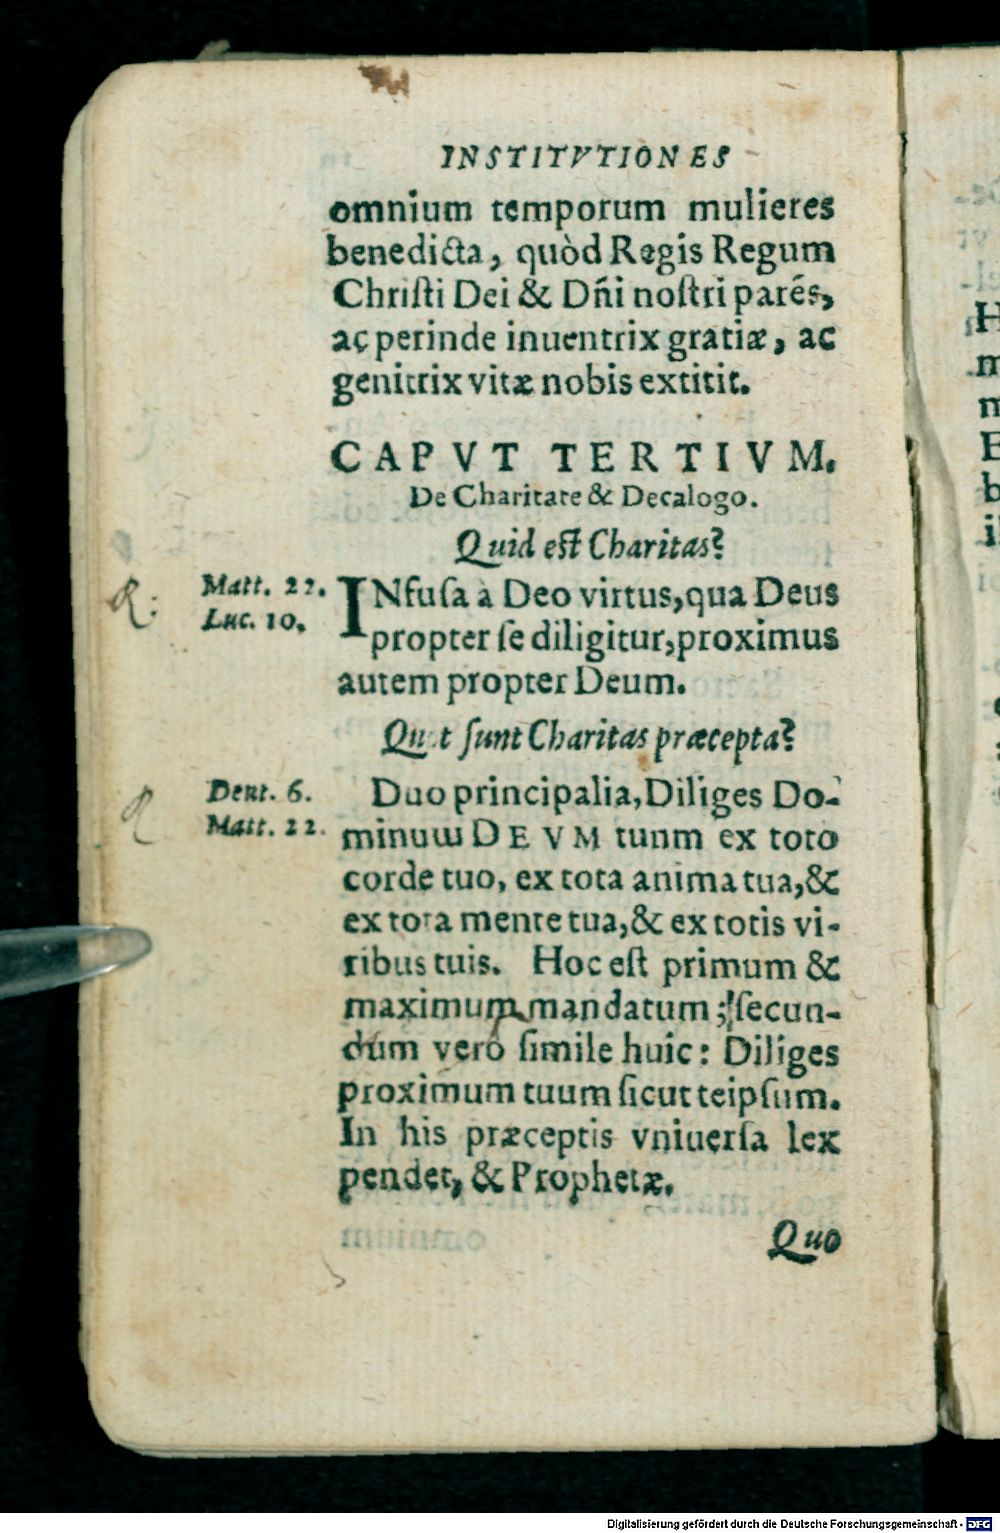 INSTITVTIONES
omnium temporum mulieres
benedicta, quòd Regis Regum
Christi Dei & Dñi nostri parẽs,
ac perinde inuentrix gratiæ, ac
genitrix vitæ nobis extitit.
CAPVT TERTIVM.
De Charitate & Decalogo.
Quid est Charitas?
R: Matt. 22.
Luc. 10.
INfusa à Deo virtus, qua Deus
propter se diligitur, proximus
autem propter Deum.
Quot sunt Charitas præcepta?
R Deut. 6.
Matt. 22.
Duo principalia, Diliges Do-
minum DEVM tuum ex toto
corde tuo, ex tota anima tua, &
ex tota mente tua, & ex totis vi-
ribus tuis. Hoc est primum &
maximum mandatum; secun-
dum verò simile huic: Diliges
proximum tuum sicut teipsum.
In his præceptis vniuersa lex
pendet, & Prophetæ.
Quo
Digitalisierung gefördert durch die Deutsche Forschungsgemeinschaft - DFG